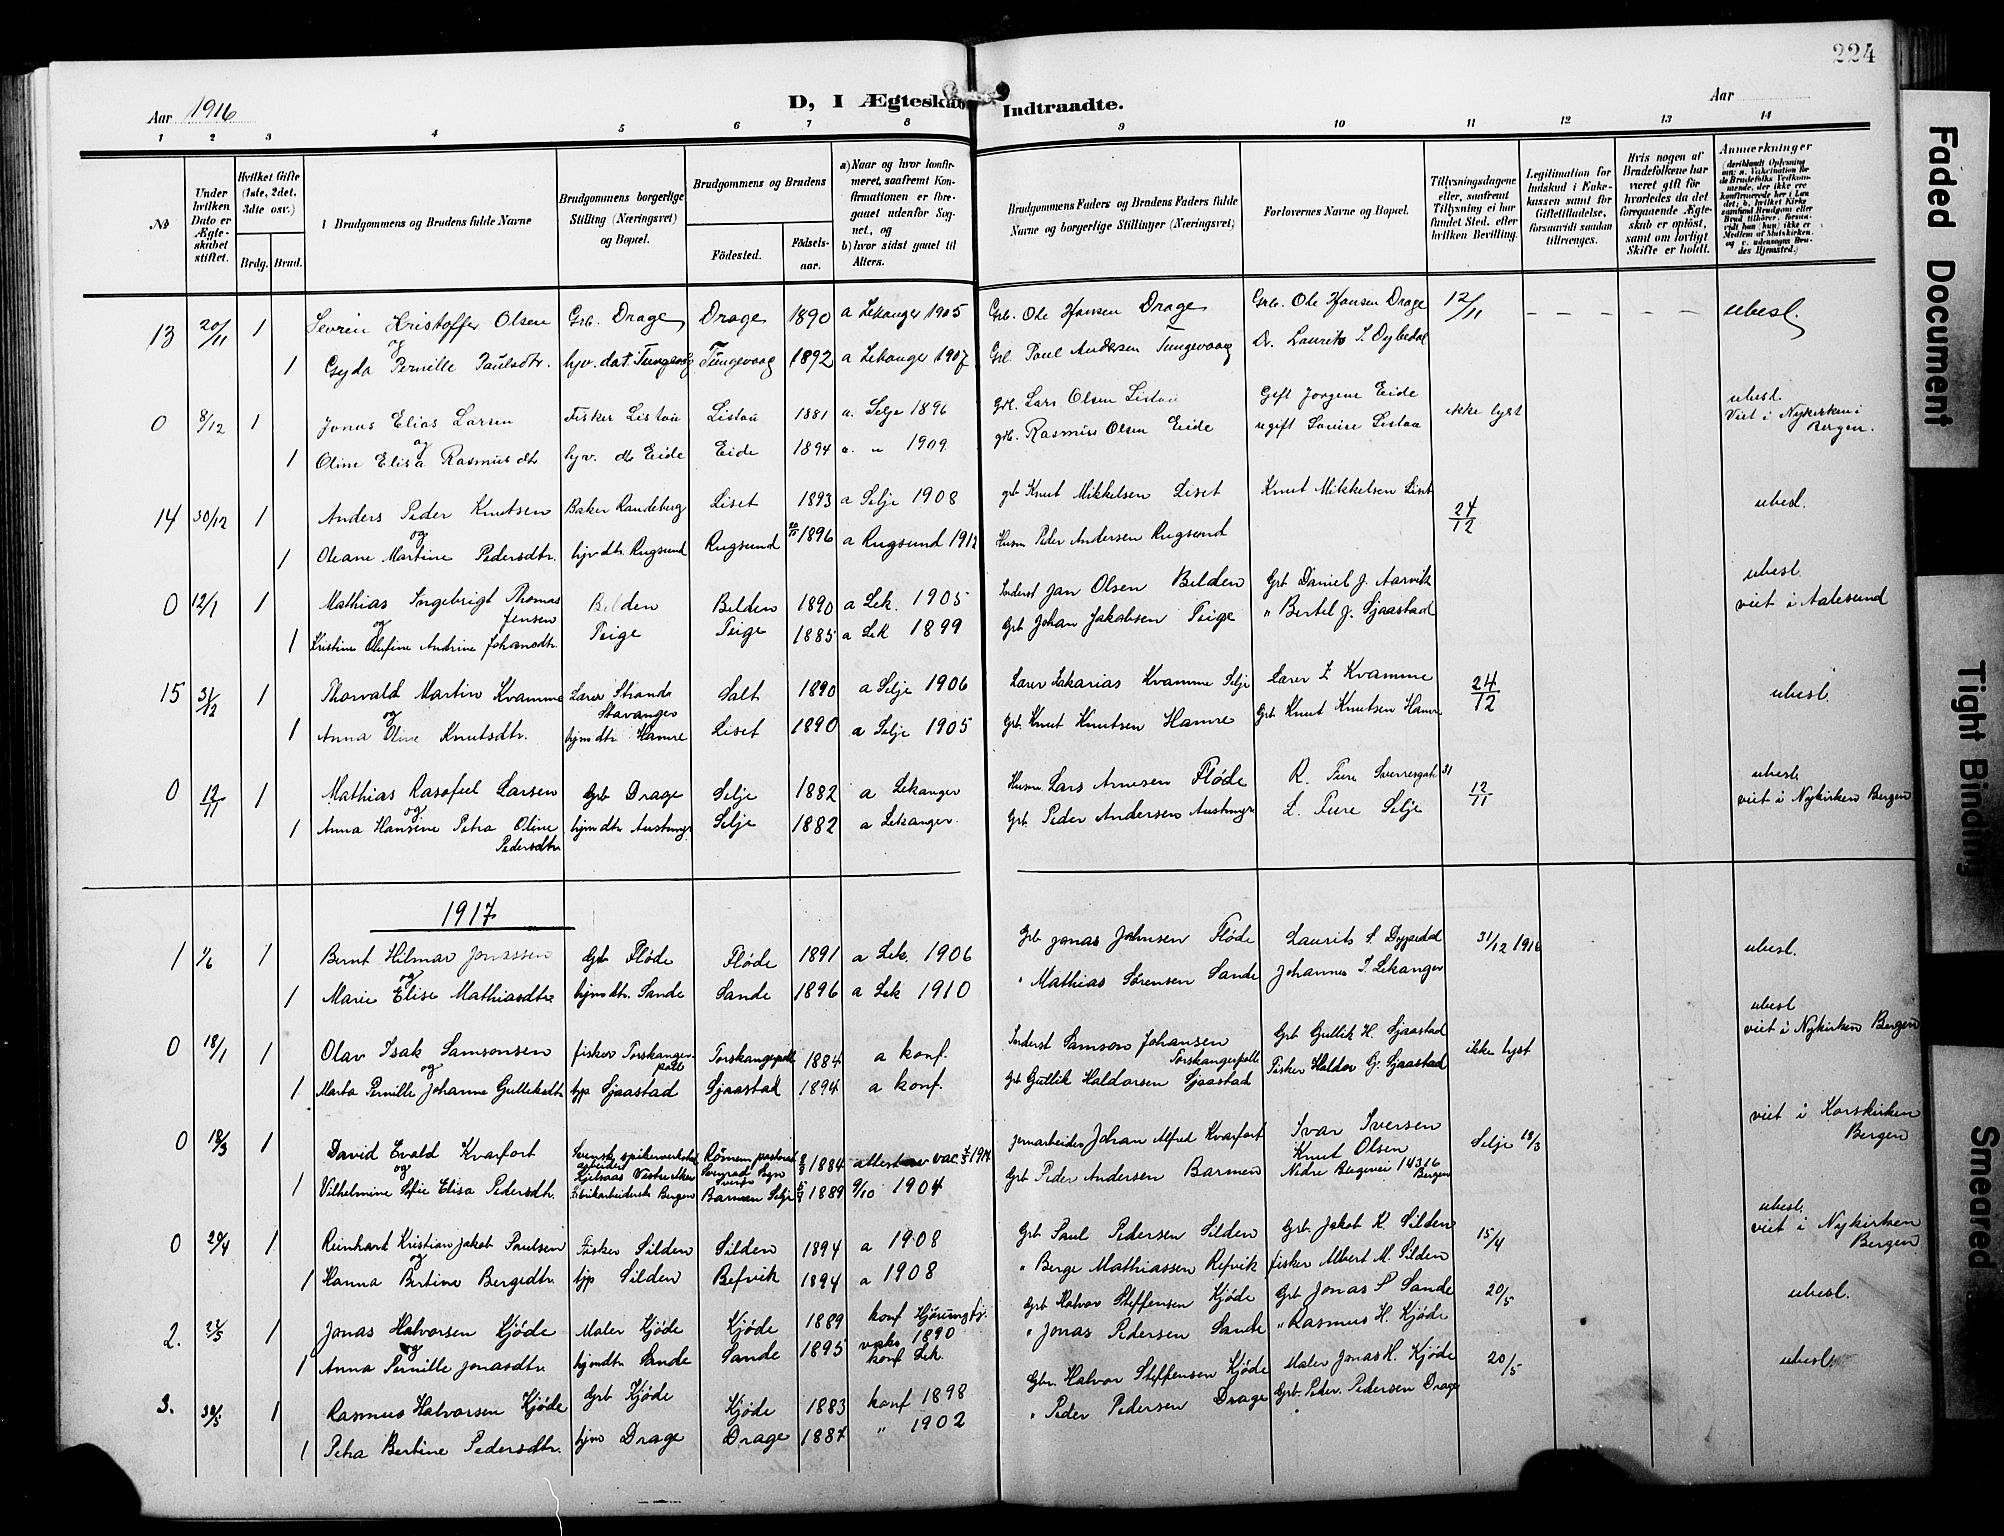 224
Aar 1916
D, I Ægteskab Indtraadte.
Aar
1 2 3 4 5 6 7 8 9 10 11 12 13 14
No
Under hvilken Dato er Ægteskabet stiftet.
Hvilket Gifte (1ste, 2det, 3die osv.)
Brdg. Brud.
Brudgommens og Brudens fulde Navne
Brudgommens borgerlige Stilling (Næringsvei) og Bopæl.
Brudgommens og Brudens
Födested. Födselsaar.
a) Naar og hvor konfirmeret, saafremt Konfirmationen er foregaaet udenfor Sognet, og
b) hvor sidst gaaet til Alters.
Brudgommens Faders og Brudens Faders fulde Navne og borgerlige Stillinger (Næringsvei)
Forlovernes Navne og Bopæl.
Tillysningsdagene eller, saafremt Tillysning ei har fundet Sted, efter hvilken Bevilling.
Legitimation for Indskud i Enkekassen samt for Giftetilladelse, forsaavidt saadan tiltrænges.
Hvis nogen af Brudefolkene har været gift för hvorledes da det foregaaende Ægteskab er oplöst, samt om lovligt Skifte er holdt.
Anmærkninger
13 20/11 1 Sevrin Kristoffer Olsen Grb. Drage Drage 1890 a Lekanger 1905 Grb. Ole Hansen Drage Grb. Ole Hansen Drage 12/11 – – – – – ubesl.
og
1 Gyda Pernille Paulsdtr. hjv. dat. Tungevaag Tungevaag 1892 a Lekanger 1907 Paul Andersen Tungevaag Laurits
0 8/12 1 Jonas Elias Larsen Fisker Listau Listau 1881 a. Selje 1896 grb. Lars Olsen Listau Gift Jorgene Eide ikke lyst ubesl. Viet i Nykirken i Bergen.
og
1 Oline Elisa Rasmusdtr hjv. dtr Eide Eide 1894 a. " 1909 grb. Rasmus Olsen Eide ugift Louise Listau
14 30/12 1 Anders Peder Knutsen Baker Randeberg Liset 1893 a Selje 1908 grb Knut Mikkelsen Liset Knut Mikkelsen Liset 24/12 ubesl.
og
1 Oleane Martine Pedersdtr. hjvdtr. Rugsund Rugsund 1896 a Rugsund 1912 Husm Peder Andersen Rugsund
0 12/1 1 Mathias Ingebrigt Thomas Jensen Belden Belden 1890 a Lek. 1905 Inderst Jan Olsen Belden Grb Daniel J. Aarvik ubesl. viet i Aalesund
og
1 Kristine Olufine Andrine Johansdtr. Teige Teige 1885 a Lek 1899 Grb Johan Jakobsen Teige " Bertel J. Sjaastad
15 31/12 1 Thorvald Martin Kvamme Lærer Strand Stavanger Salt 1890 a Selje 1906 Lærer Zakarias Kvamme Selje Lærer Z Kvamme 24/12 ubesl.
og
1 Anna Oline Knutsdtr. hjmdtr. Hamre Liset 1890 a Selje 1905 Grb. Knut Knutsen Hamre Grb Knut Knutsen Hamre
0 12/11 1 Mathias Rasofiel Larsen Grb Drage Selje 1882 a Lekanger Husm Lars Arnesen Flöde R. Ture Sverresgate 31 12/11 ubesl. viet i Nykirken Bergen
og
1 Anna Hansine Petra Oline Pedersdtr hjmdtr. Selje 1882 a Lekanger. Grb. Peder Andersen L. Ture Selje
1917
1 1/6 1 Bernt Hilmar Jonassen Grb Flöde Flöde 1891 a Lek. 1906 Grb Jonas Johnsen Flöde Laurits S. Dypedal 31/12 1916 ubesl.
og
1 Marie Elise Mathiasdtr hjmdtr. Sande Sande 1896 a Lek 1910 " Mathias Sörensen Sande Johannes I. Lekanger
0 18/1 1 Olav Isak Samsonsen fisker Torskangerpoll Torskangerpoll 1884 a konf. Inderst Samson Johansen Torskangerpoll Grb Gullik H. Sjaastad ikke lyst ubesl viet i Nykirken Bergen
og
1 Marta Pernille Johanne Gulliksdtr hjp Sjaastad Sjaastad 1894 a konf. Grb Gullik Haldorsen Sjaastad Fisker Haldor G. Sjaastad
0 18/3 1 David Evald Kvarfort Svensk spikerverksted arbeider 1884 vac. 1917 jernarbeider Johan Alfred Kvarfort Ivar Iversen Knut Olsen Selje 18/3 viet i Korskirken Bergen
og
1 Vilhelmine Sofie Elisa Pedersdtr. Fabrikarbeidersk Bergen Barmen Selje 1889 9/10 1904 Grb Peder Andersen Barmen Nedre Blegevei 14316 Bergen
0 29/4 1 Reinhard Kristian Jakob Paulsen Fisker Silden Silden 1894 a 1908 Grb Paul Pedersen Silden Grb. Jakob K. Silden 15/4 ubesl. viet i Nykirken Bergen
og
1 Hanna Bertine Bergedtr. hjp Silden Refvik 1894 a 1908 " Berge Mathiassen Refvik fisker Albert M. Silden
2. 27/5 1 Jonas Halvorsen Kjöde Maler Kjöde Kjöde 1889 konf Hjörungfj. vaks 1890 Grb Halvor Steffensen Kjöde Grb Jonas P Sande 20/5 ubesl.
og
1 Anna Pernille Jonasdtr. hjmdtr. Sande Sande 1895 konf Lek. " Jonas Pedersen Sande " Rasmus H. Kjöde
3. 1 Rasmus Halvorsen Kjöde Grb Kjöde Kjöde 1883 konf 1898 Gbr. Halvor Steffensen Kjöde Maler Jonas H. Kjöde 20/5 ubesl.
1 Petra Bertine Pedersdtr. hjm Drage Drage 1887 " 1902 " Peder Pedersen Drage Grb. Peder Pedersen Drage
Faded Document
Tight Binding
Smeared